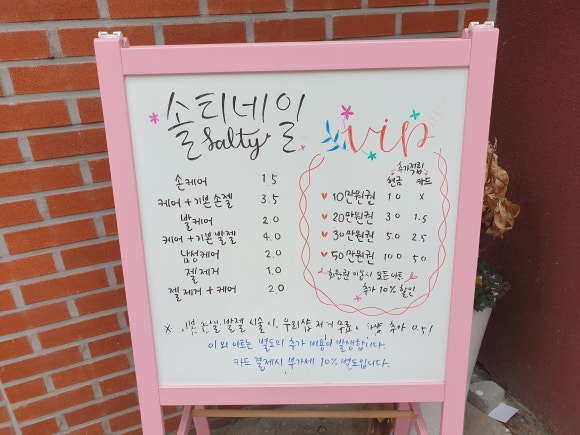 솔티네일
Salty
손케어 1.5
케어+기본손젤 3.5
발케어 2.0
케어+기본발젤 4.0
남성케어 2.0
젤제거 1.0
젤제거+케어 2.0
vip
추가적립
현금 카드
10만원권 1.0 x
20만원권 3.0 1.5
30만원권 5.0 2.5
50만원권 10.0 5.0
회원권 이용시 모든아트
추가 10% 할인
손젤, 발젤 시술시, 우리샵 제거 무료, 추가 0.5!
이 외 아트는 별도의 추가 비용이 발생합니다.
카드 결제시 부가세 10% 별도입니다.